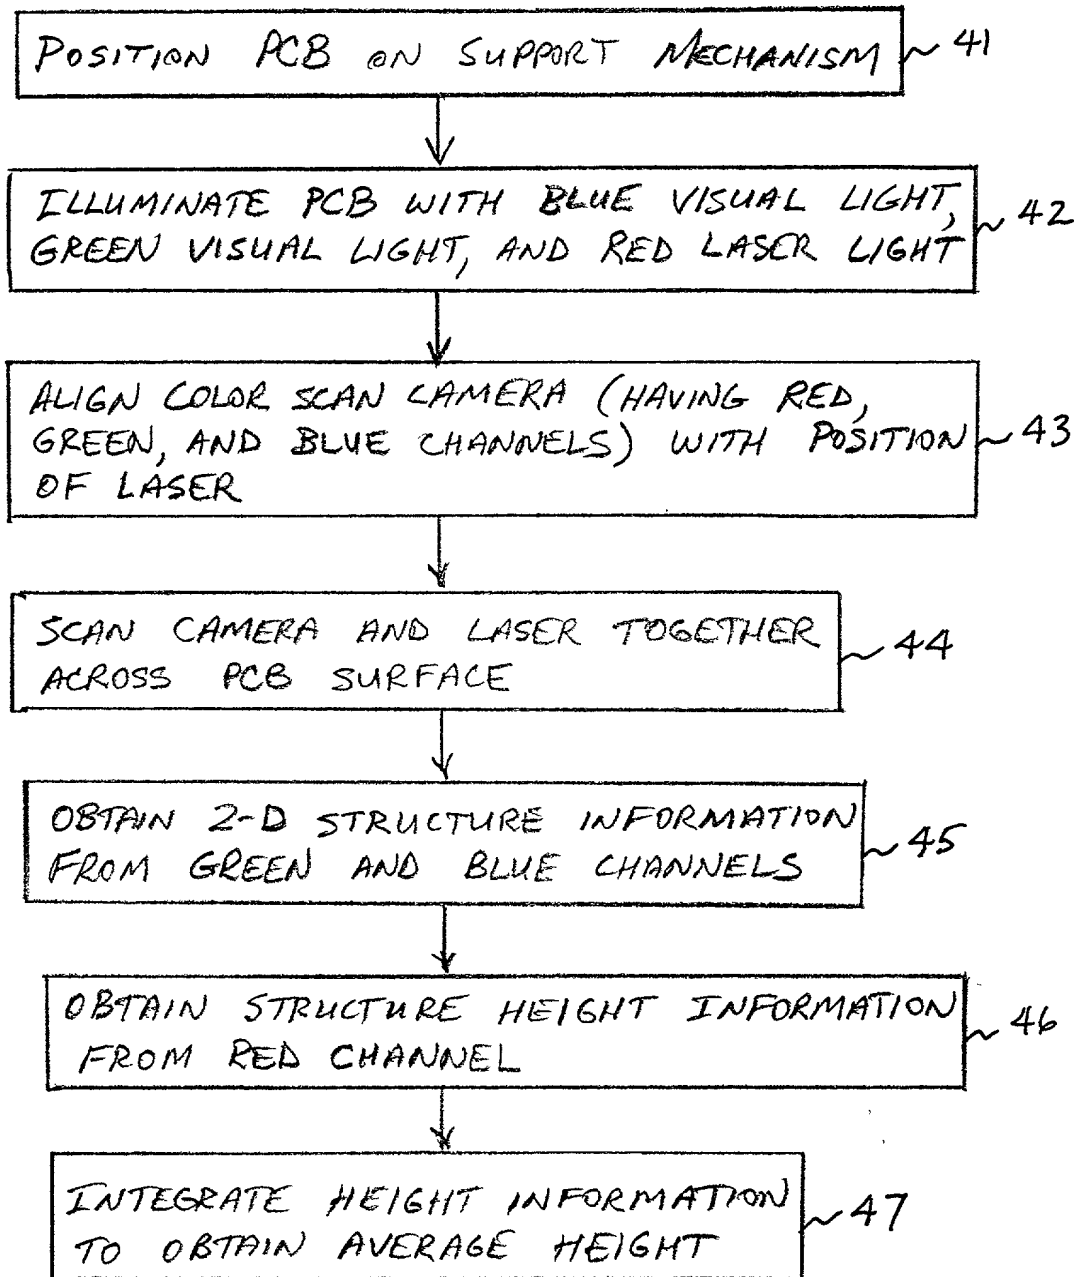 POSITION PCB ON SUPPORT MECHANISM
41
ILLUMINATE PCB WITH BLUE VISUAL LIGHT,
GREEN VISUAL LIGHT, AND RED LASER LIGHT
42
ALIGN COLOR SCAN CAMERA (HAVING RED,
GREEN, AND BLUE CHANNELS) WITH POSITION
OF LASER
43
SCAN CAMERA AND LASER TOGETHER
ACROSS PCB SURFACE
44
OBTAIN 2-D STRUCTURE INFORMATION
FROM GREEN AND BLUE CHANNELS
45
OBTAIN STRUCTURE HEIGHT INFORMATION
FROM RED CHANNEL
46
INTEGRATE HEIGHT INFORMATION
TO OBTAIN AVERAGE HEIGHT
47